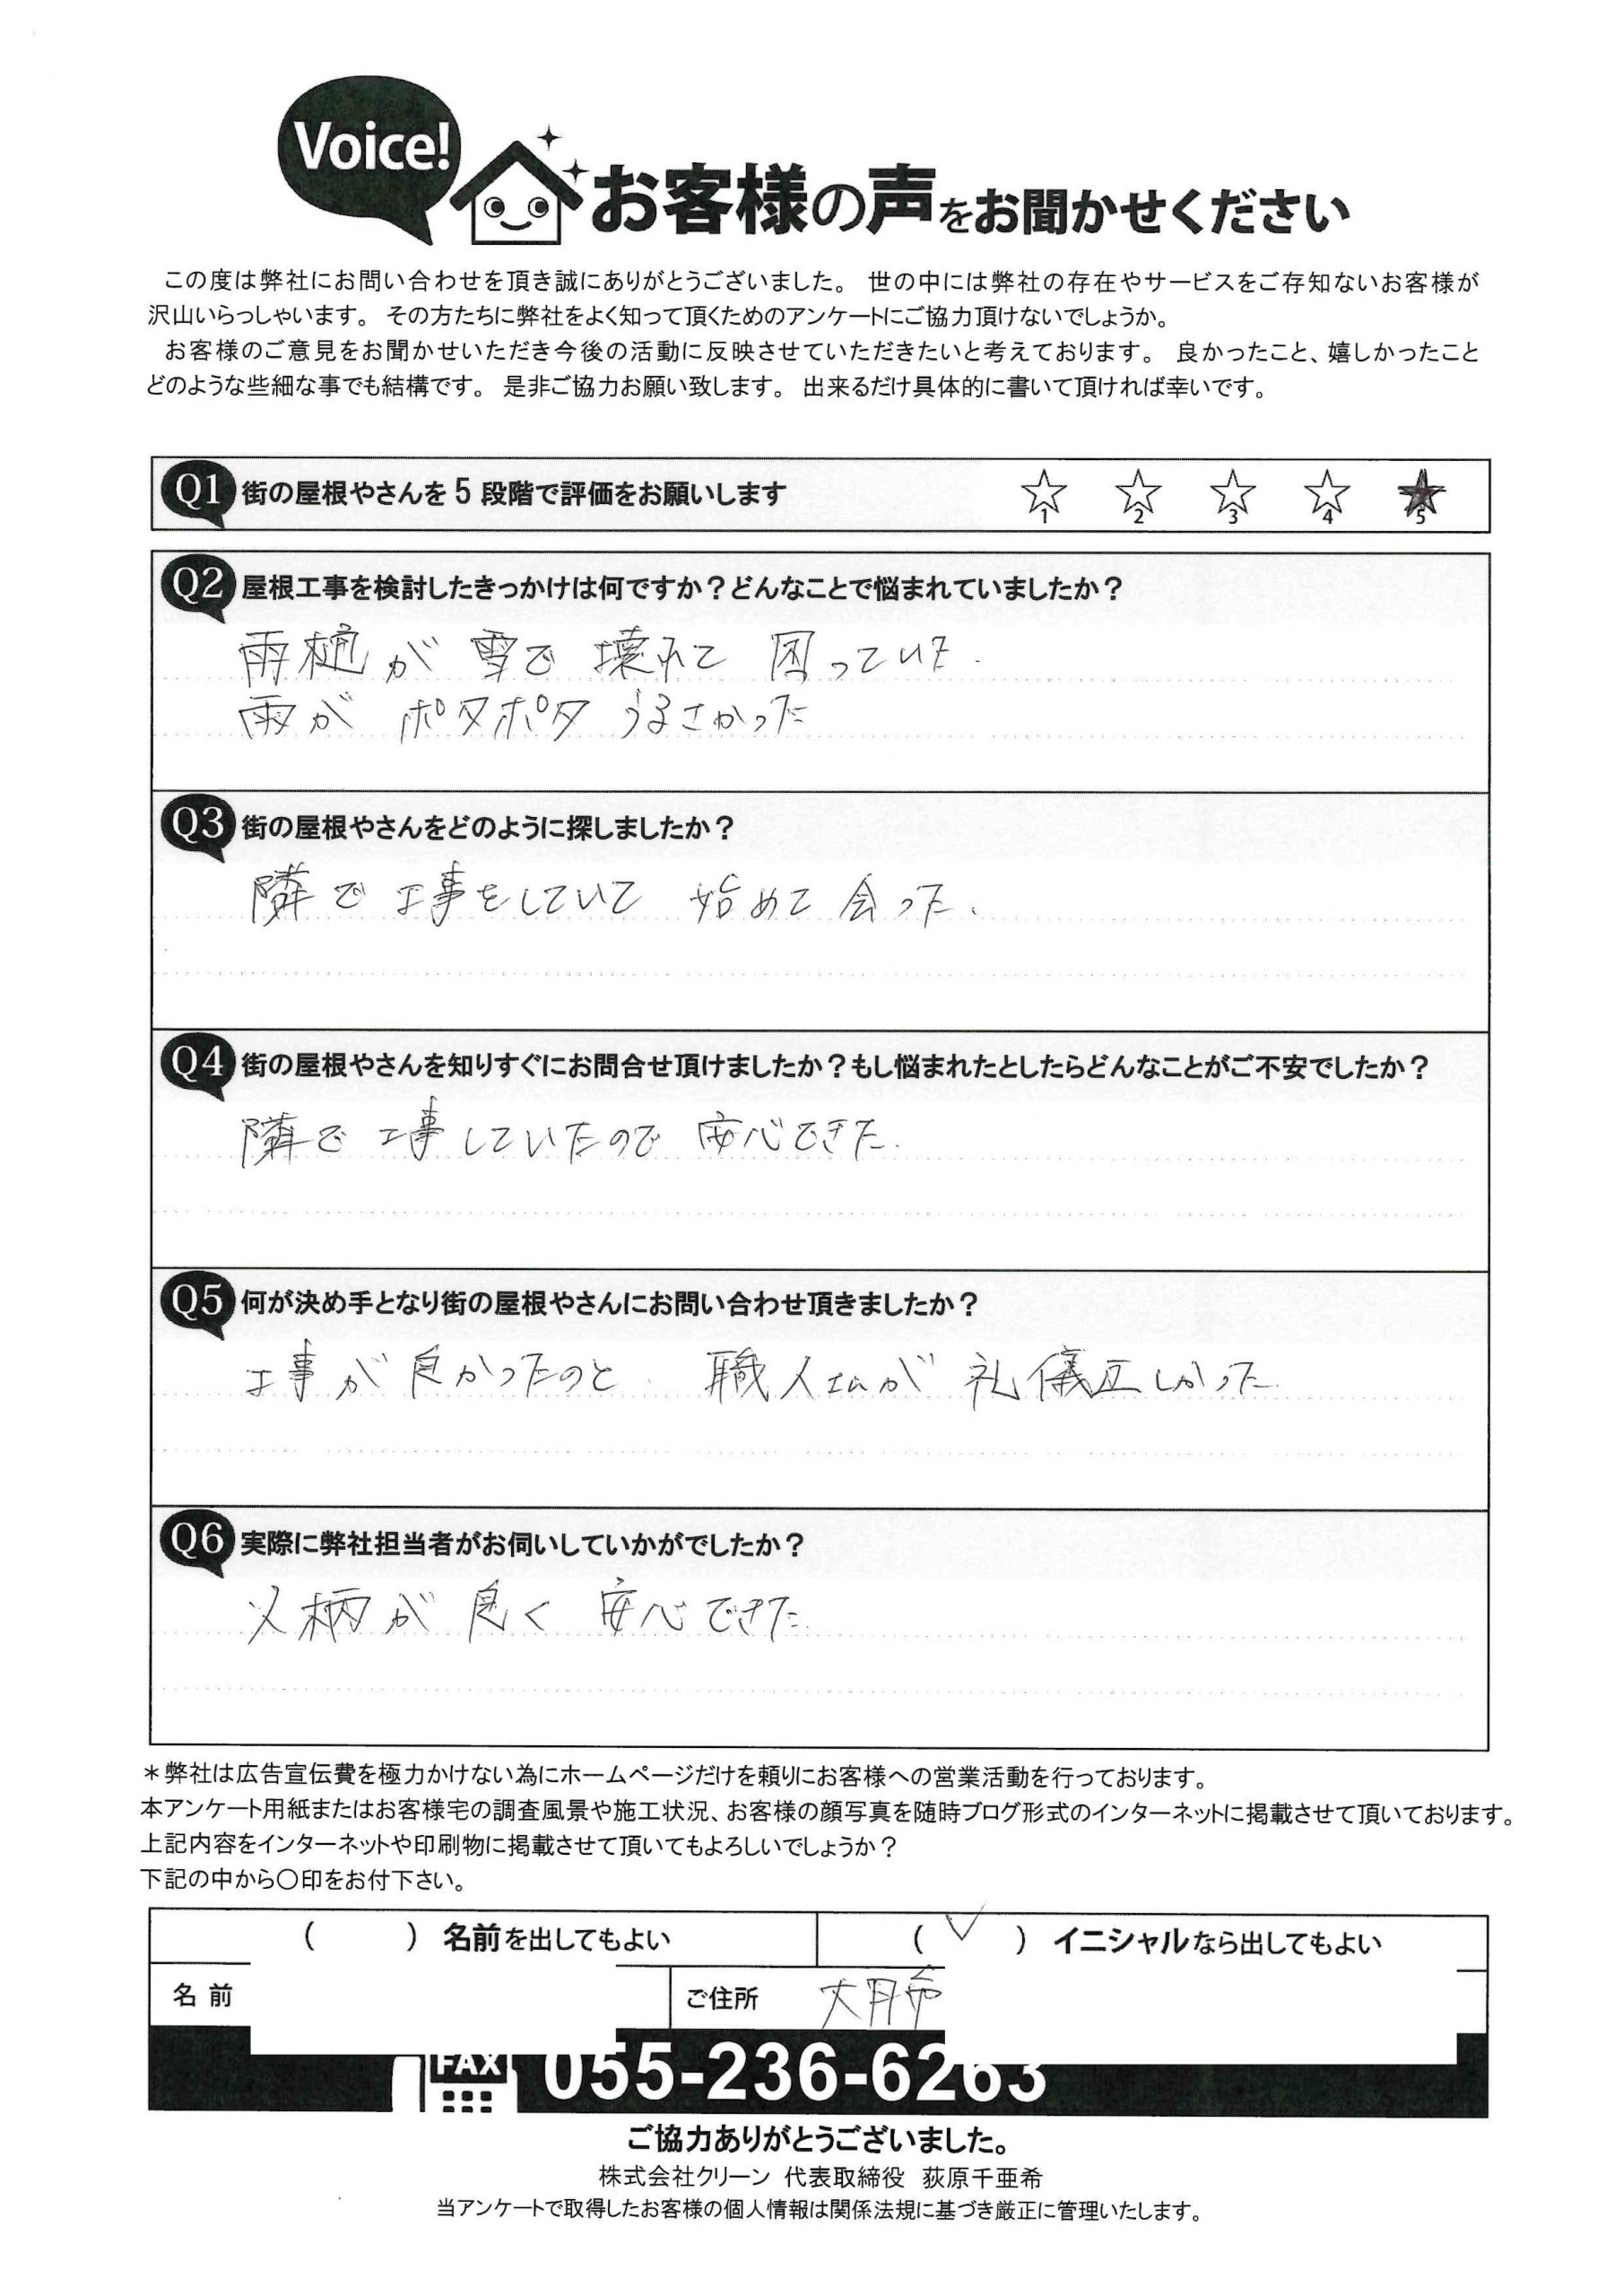 Voice!
お客様の声をお聞かせください
この度は弊社にお問い合わせを頂き誠にありがとうございました。 世の中には弊社の存在やサービスをご存知ないお客様が
沢山いらっしゃいます。 その方たちに弊社をよく知って頂くためのアンケートにご協力頂けないでしょうか。
お客様のご意見をお聞かせいただき今後の活動に反映させていただきたいと考えております。 良かったこと、嬉しかったこと
どのような些細な事でも結構です。 是非ご協力お願い致します。 出来るだけ具体的に書いて頂ければ幸いです。
Q1 街の屋根やさんを5段階で評価をお願いします ☆1 ☆2 ☆3 ☆4 ★5
Q2 屋根工事を検討したきっかけは何ですか？どんなことで悩まれていましたか？
雨樋が 雪で 壊れて 困っていた.
雨が ポタポタ うるさかった
Q3 街の屋根やさんをどのように探しましたか？
隣で工事をしていて 始めて会った.
Q4 街の屋根やさんを知りすぐにお問合せ頂けましたか？もし悩まれたとしたらどんなことがご不安でしたか？
隣で工事していたので 安心できた.
Q5 何が決め手となり街の屋根やさんにお問い合わせ頂きましたか？
工事が良かったのと. 職人さんが 礼儀正しかった
Q6 実際に弊社担当者がお伺いしていかがでしたか？
人柄が良く 安心できた.
＊弊社は広告宣伝費を極力かけない為にホームページだけを頼りにお客様への営業活動を行っております。
本アンケート用紙またはお客様宅の調査風景や施工状況、お客様の顔写真を随時ブログ形式のインターネットに掲載させて頂いております。
上記内容をインターネットや印刷物に掲載させて頂いてもよろしいでしょうか？
下記の中から〇印をお付下さい。
（　　）名前を出してもよい （✓）イニシャルなら出してもよい
名前 ご住所 大月市
FAX 055-236-6263
ご協力ありがとうございました。
株式会社クリーン 代表取締役 荻原千亜希
当アンケートで取得したお客様の個人情報は関係法規に基づき厳正に管理いたします。